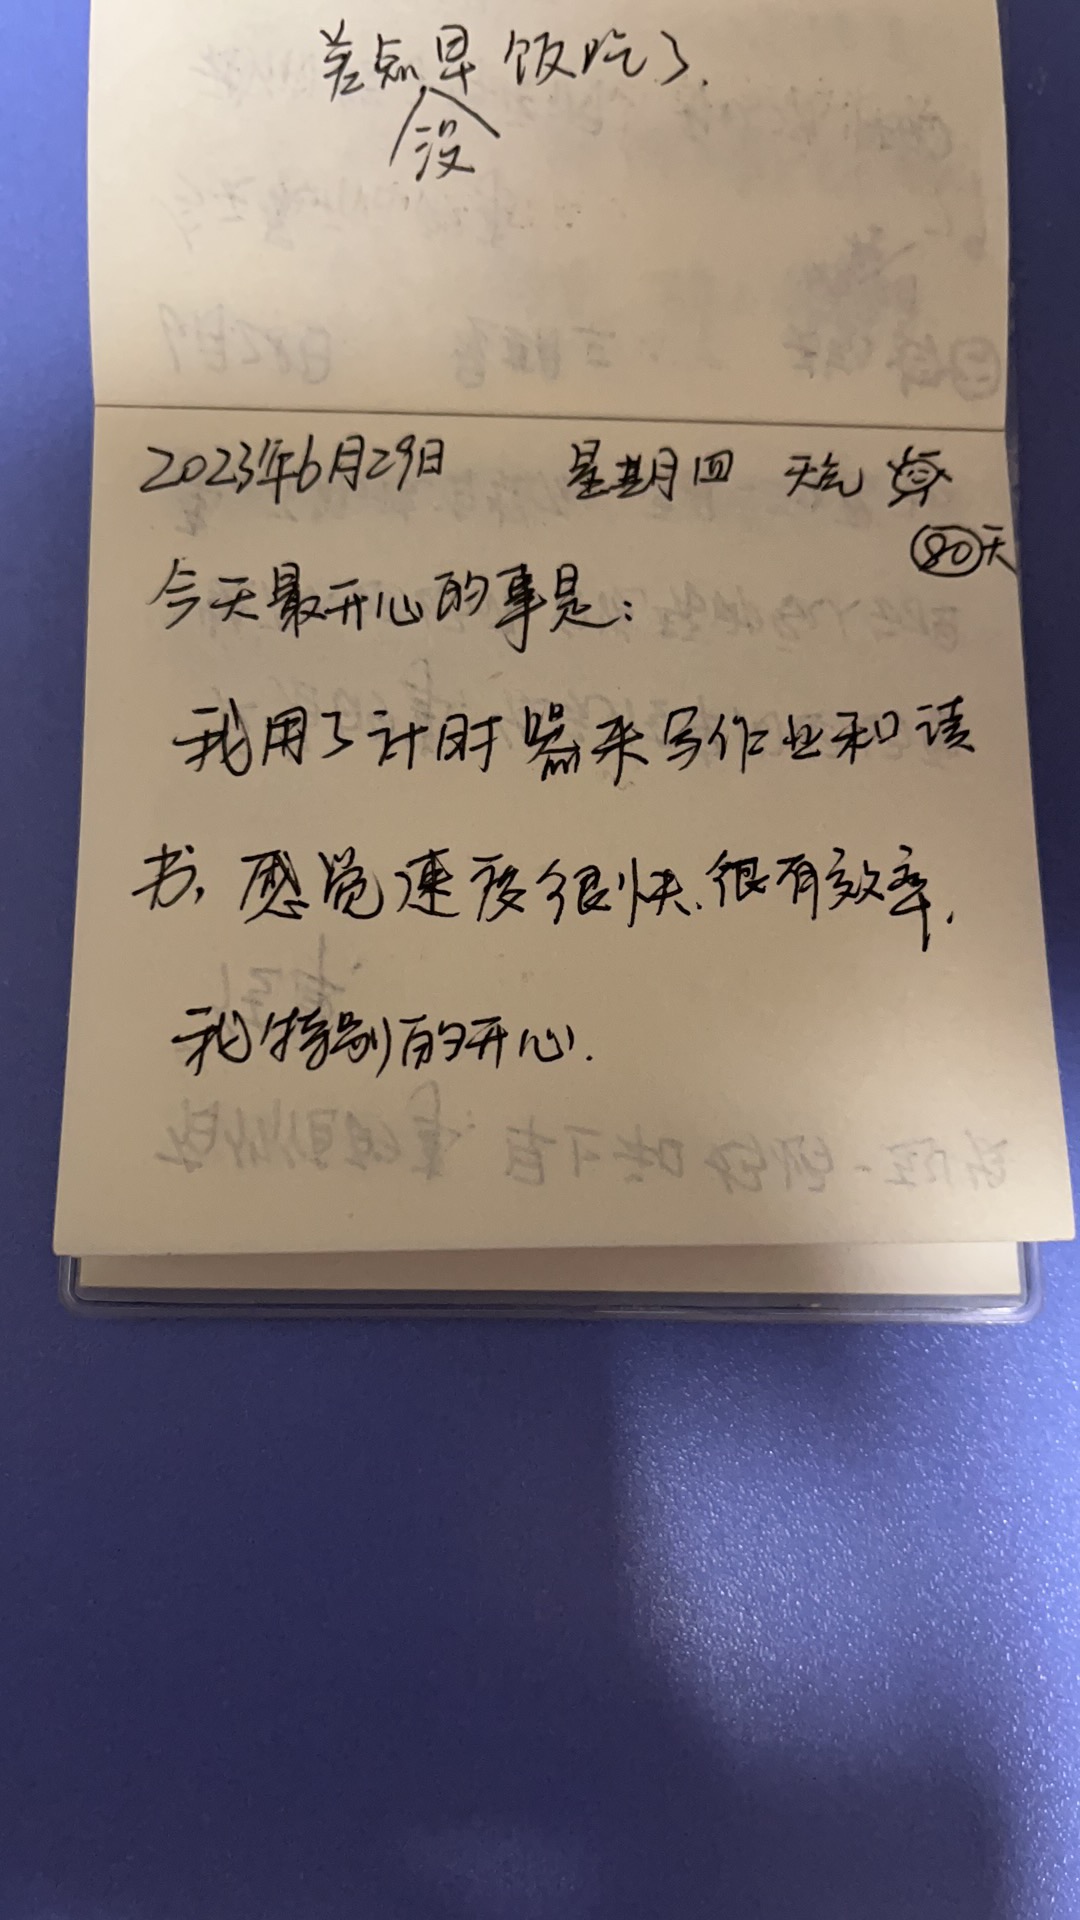 差点早饭吃了.
没
2023年6月29日 星期四 天气
80天
今天最开心的事是:
我用了计时器来写作业和读
书,感觉速度很快.很有效率.
我特别的开心.